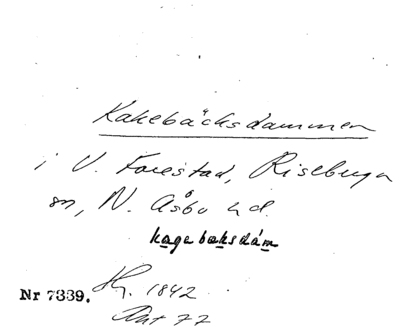 Kakebäcksdammen
i V. Forestad, Riseberga
sn, N. Åsbo hd.
kagebaksdám
Nr 7339. Hg. 1842
Akt 77